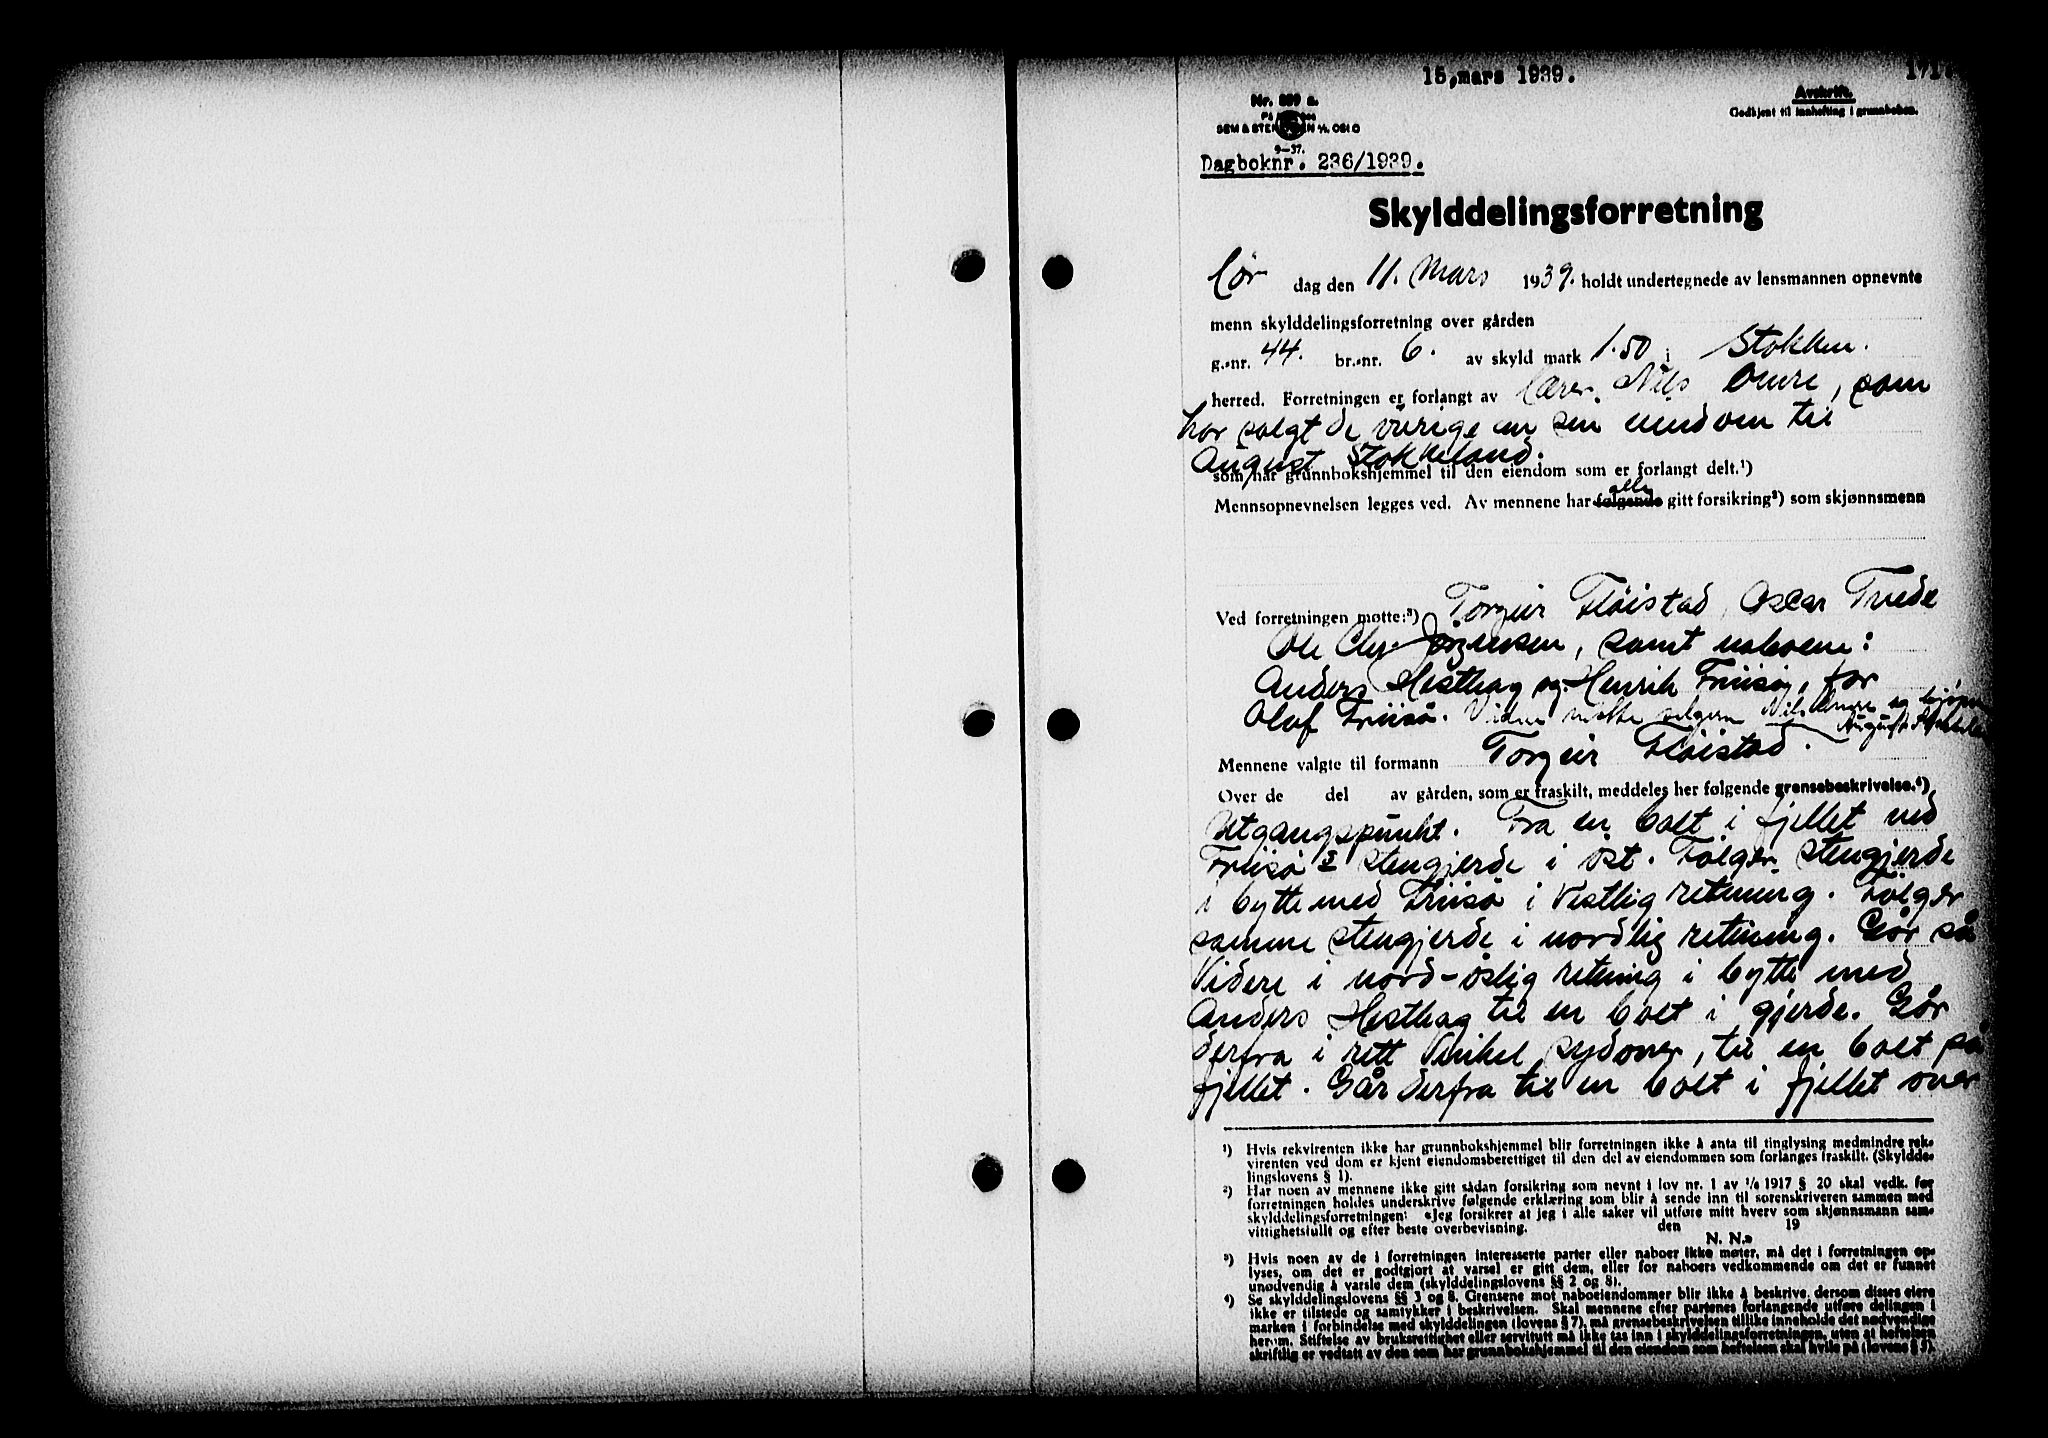 15. mars 1939.
171
Avskrift.
Godkjent til innhefting i grunnboken.
Nr. 259 a.
SEM & STENERSEN A/S. OSLO
9-37.
Dagboknr. 236/1939.
Skylddelingsforretning
Lør dag den 11. Mars 1939. holdt undertegnede av lensmannen opnevnte
menn skylddelingsforretning over gården
g.-nr. 44. br.-nr. 6. av skyld mark 1.50 i Stokken.
herred. Forretningen er forlangt av Lærer. Nils Omre, som
har solgt de øvrige en sin eiendom til
August Stokkeland.
som har grunnbokshjemmel til den eiendom som er forlangt delt.¹)
alle
Mennsopnevnelsen legges ved. Av mennene har følgende gitt forsikring²) som skjønnsmenn
Ved forretningen møtte:³) Torgeir Fløistad, Oscar Tvede
Ole Chr. Jørgensen, samt naboene:
Anders Hesthag og Henrik Friisø, for
Oluf Friisø. Videre møtte selgeren Nils Omre og kjøper
August Stokkeland
Mennene valgte til formann Torgeir Fløistad.
Over de del av gården, som er fraskilt, meddeles her følgende grensebeskrivelse.⁴)
Utgangspunkt. Fra en bolt i fjellet ved
Friisø s stengjerde i øst. Følger stengjerde
i bytte med Friisø i Vestlig retning. Følger
samme stengjerde i nordlig retning. Går så
Videre i nord-øslig retning i bytte med
Anders Hesthag til en bolt i gjerde. Går
derfra i rett Vinkel sydover, til en bolt på
fjellet. Går derfra til en bolt i fjellet over
¹) Hvis rekvirenten ikke har grunnbokshjemmel blir forretningen ikke å anta til tinglysing medmindre rek-
virenten ved dom er kjent eiendomsberettiget til den del av eiendommen som forlanges fraskilt. (Skyldde-
lingslovens § 1).
²) Har noen av mennene ikke gitt sådan forsikring som nevnt i lov nr. 1 av 1/6 1917 § 20 skal vedk. før
forretningen holdes underskrive følgende erklæring som blir å sende inn til sorenskriveren sammen med
skylddelingsforretningen: «Jeg forsikrer at jeg i alle saker vil utføre mitt hverv som skjønnsmann sam-
vittighetsfullt og efter beste overbevisning. den 19
N. N.»
³) Hvis noen av de i forretningen interesserte parter eller naboer ikke møter, må det i forretningen op-
lyses, om det er godtgjort at varsel er gitt dem, eller for naboers vedkommende om det er funnet
unødvendig å varsle dem (skylddelingslovens §§ 2 og 8).
⁴) Se skylddelingslovens §§ 3 og 8. Grensene mot naboeiendommer blir ikke å beskrive, dersom disses eiere
ikke er tilstede og samtykker i beskrivelsen. Skal mennene efter partenes forlangende utføre delingen i
marken i forbindelse med skylddelingen (lovens § 7), må grensebeskrivelsen tillike inneholde det nødvendige
herom. Stiftelse av bruksrettighet eller servitutt må ikke tas inn i skylddelingsforretningen, uten at heftelsen
skriftlig er vedtatt av den som har grunnbokshjemmel til den eiendom som heftelsen skal hvile på (lovens § 5).